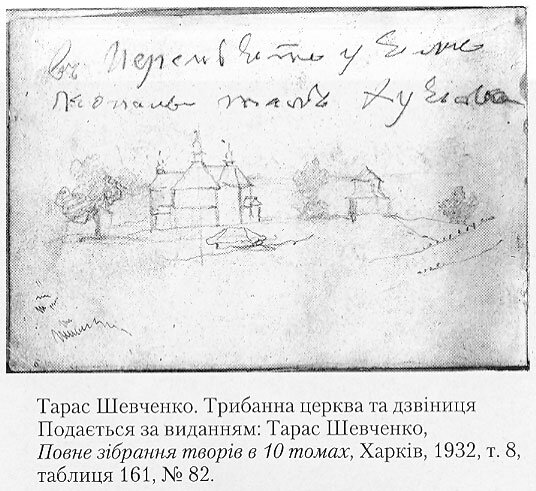 въ
у
Тарас Шевченко. Трибанна церква та дзвіниця
Подається за виданням: Тарас Шевченко,
Повне зібрання творів в 10 томах, Харків, 1932, т. 8,
таблиця 161, № 82.